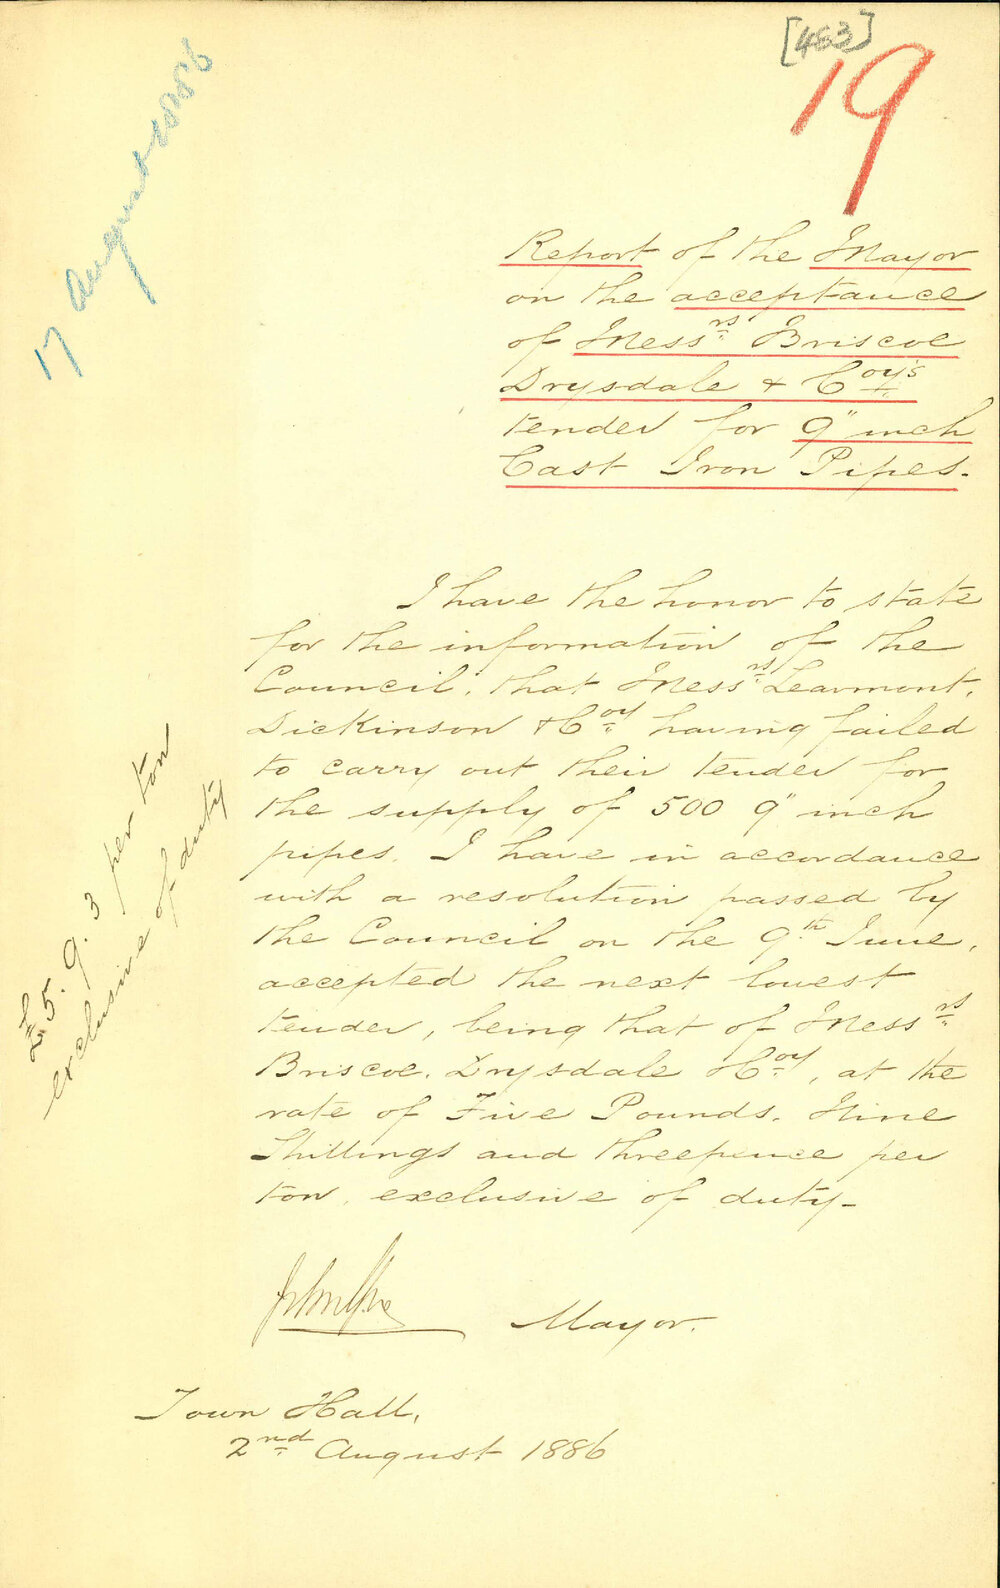 [483]
19
17 August 1886
Report of the Mayor
on the acceptance
of Mess.rs Briscoe
Drysdale & Coy's
tender for 9" inch
Cast Iron Pipes.
I have the honor to state
for the information of the
Council, that Mess.rs Learmont,
Dickinson & Coy having failed
to carry out their tender for
the supply of 500 9" inch
pipes. I have in accordance
with a resolution passed by
the Council on the 9th June,
accepted the next lowest
tender, being that of Mess.rs
Briscoe, Drysdale & Coy, at the
rate of Five Pounds, Nine
Shillings and threepence per
ton, exclusive of duty-
£5. 9. 3 per ton
exclusive of duty
Mayor.
Town Hall,
2nd August 1886